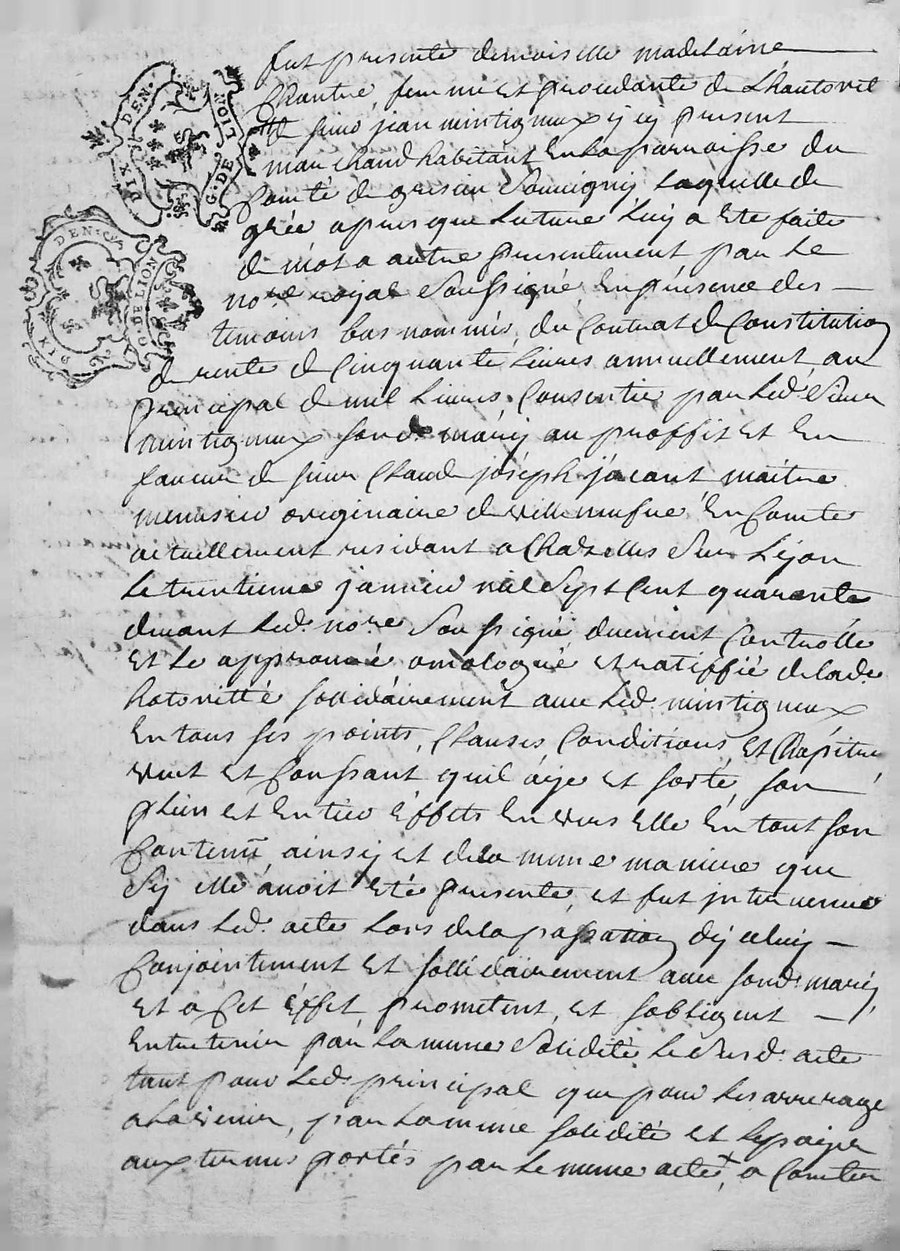 DIX DEN.
G. DE LION
DIX DENrs
G. DE LION
fut presente demoiselle madelaine
Chantre, femme et procedante de Lhautorité
de sieur jean mintigneux y cy present
marchand habitant En la parroisse du
Comté de grisieu Souvigny Laquelle de
grée apres que Lecture Luy a Eté faite
de mot a autre presentement par Le
nore royal Soussigné En présence des
temoins bas nommés, du Contrat de Constitution
de rente de Cinquante Livres annuellement au
principal de mil Livres Consentie par Led. Sieur
mintigneux Sond. mary au proffit et En
faveur de sieur Claude joseph jacant maitre
menusier originaire de ville neufve En Comté
actuellement residant a Chazelles Sur Lÿon
Le trentieme janvier mil Sept Cent quarente
devant Led. nore Soussigné duement Controllé
Et Le approuvé omologué et ratiffié de lad.
hotoritté sollidairement avec Led. mintigneux
En tous ses points, Clauses Conditions, et Chapitres
veut et Consant quil aÿe et sorte, son
plein et Entier Effets En vers Elle En tout son
Contenû, ainsy et de la meme maniere que
Sy elle avoit Eté presente, et fut intervenue
dans Led. acte Lors de la passation dy celuy
Conjointement et sollidairement avec sond. mary
Et a Cet Effet prometent, et sobligent
Entretenir par La meme Solidité Le Susd. acte
tant pour Led. principal que pour Les arrerages
a Lavenir, par La meme solidité et Le paÿer
aux termes portés par Le meme acte, a Compter